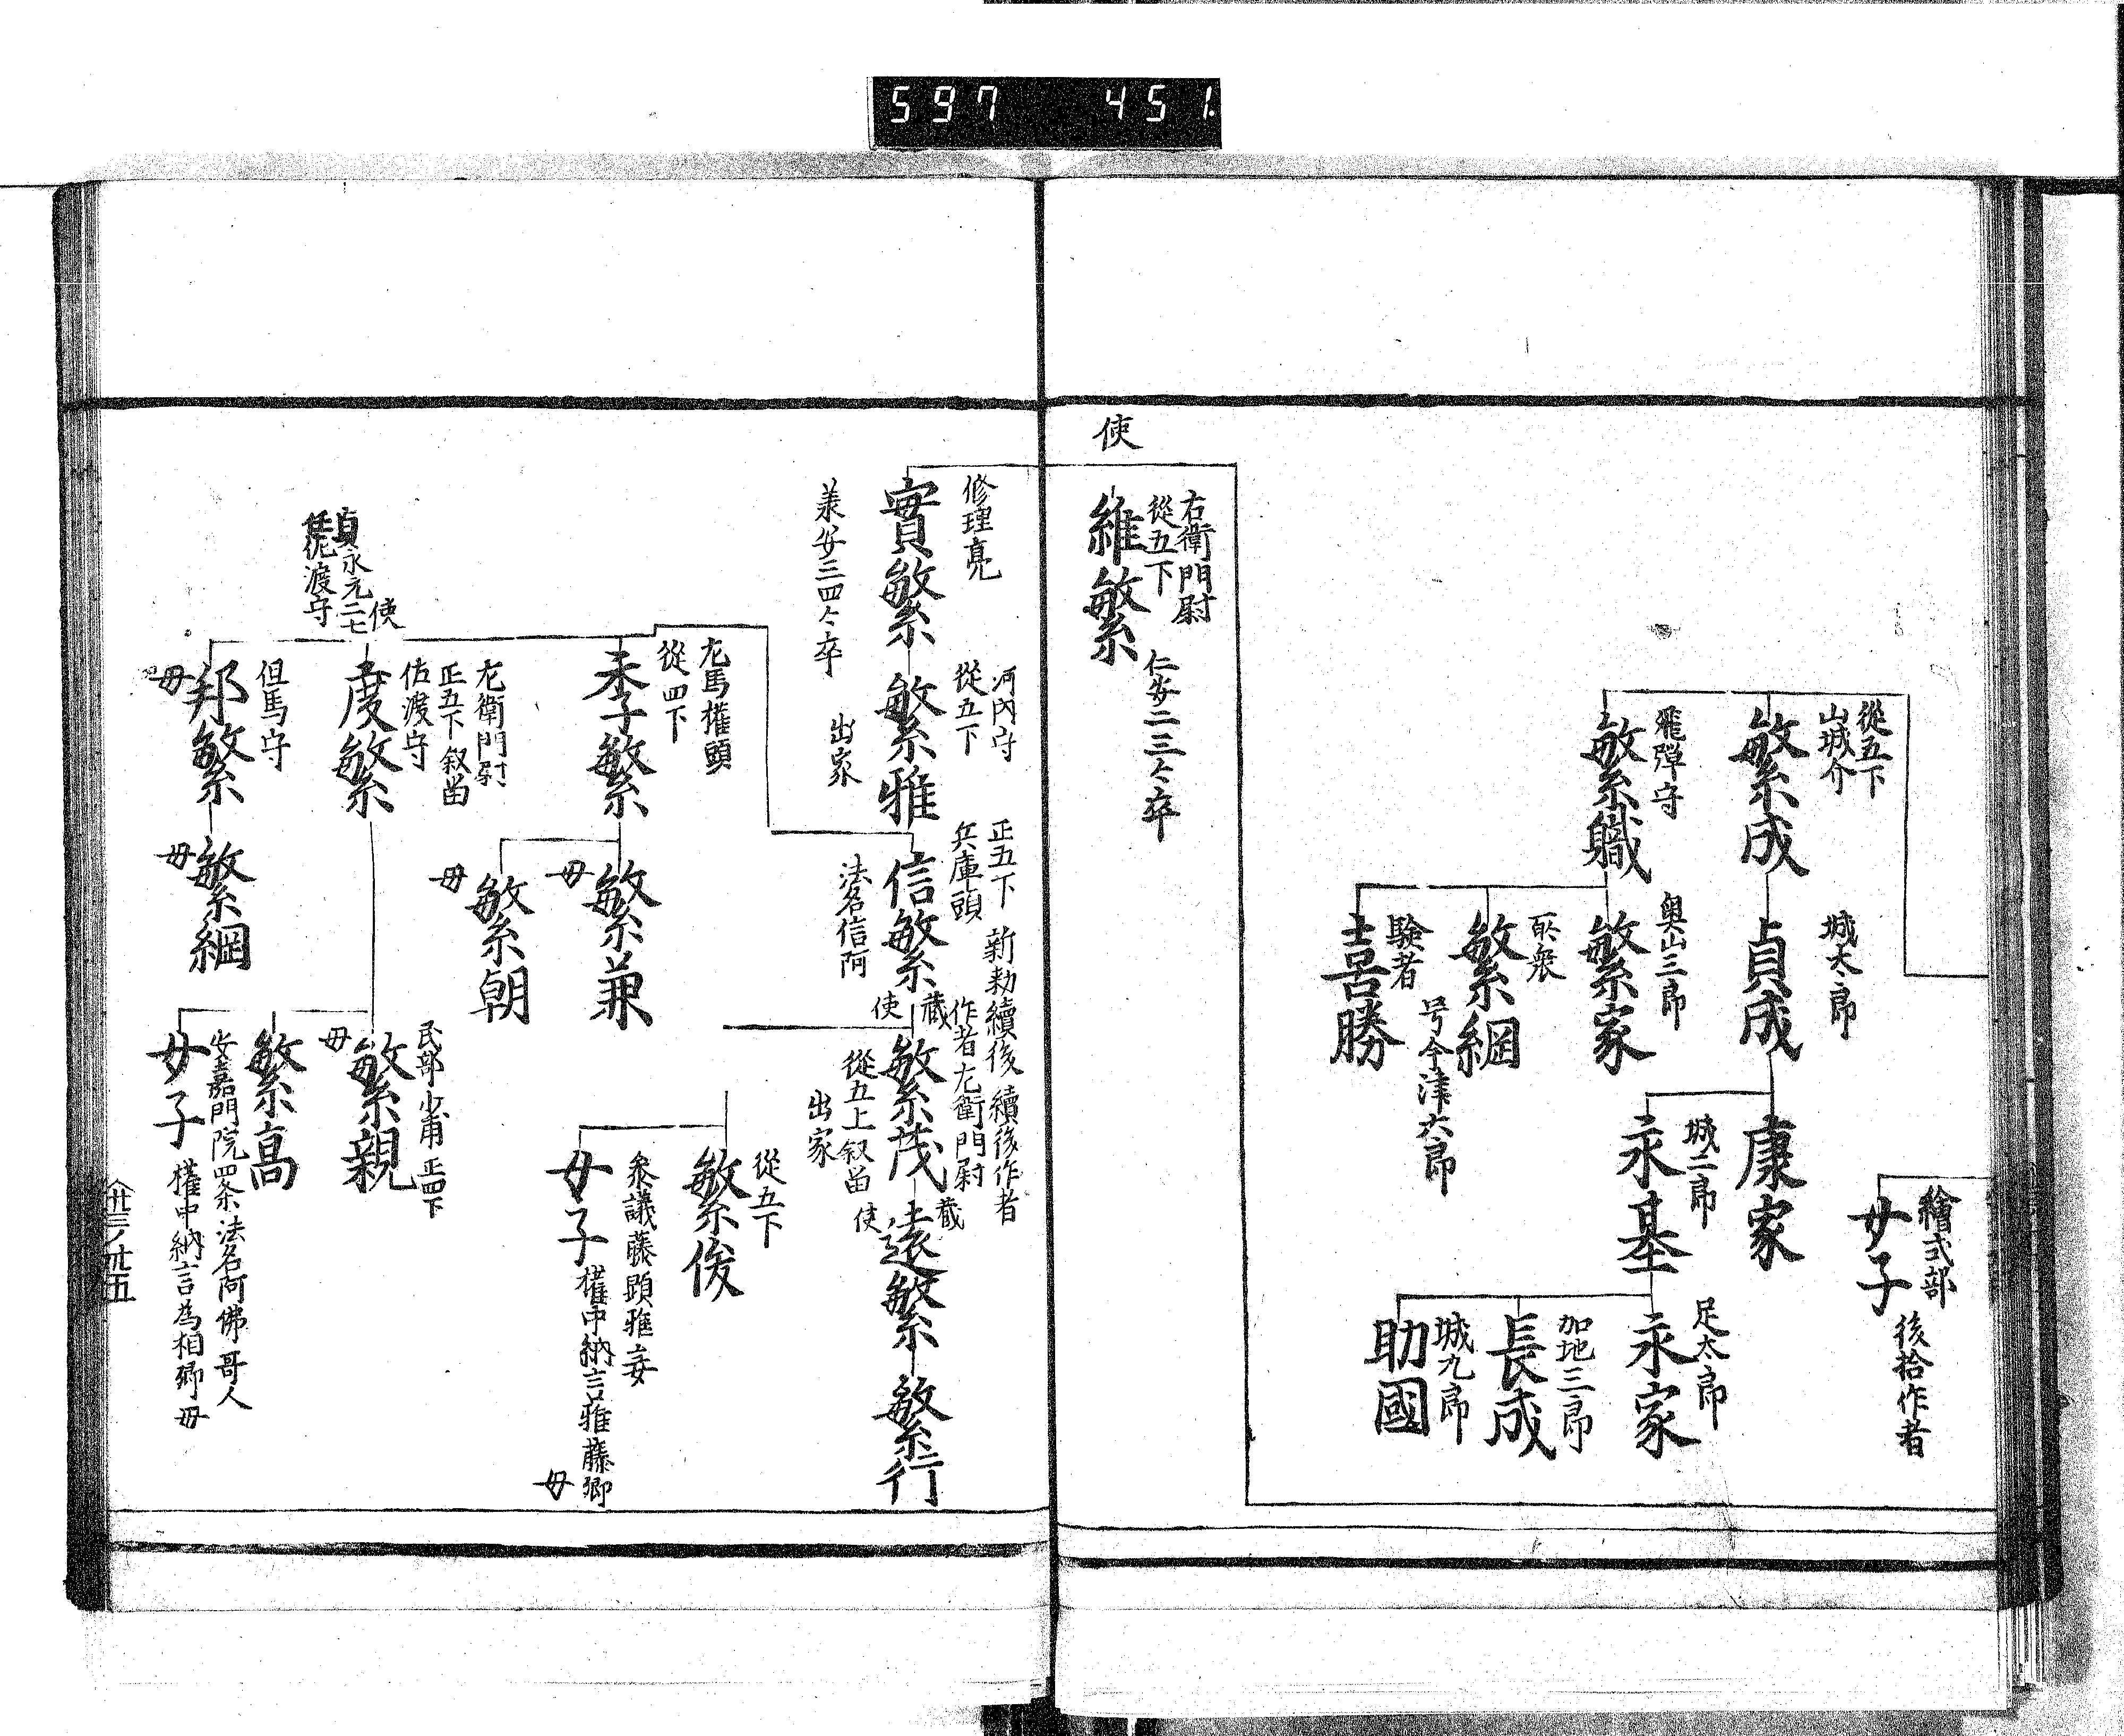 597 451
從五下
山城介
繁成
城太郎
貞成
康家
城二郎
永基
足太郎
永家
加地三郎
長成
城九郎
助國
繪式部
女子
後拾作者
飛彈守
繁職
奥山三郎
繁家
繁綱
号今津六郎
驗者
喜勝
使
右衛門尉
從五下
維繁
仁安二三々卒
修理亮
實繁
承安三四々卒
河内守
從五下
繁雅
出家
正五下
兵庫頭
信繁
法名信阿
新勅續後 續後作者
藏
使
作者左衛門尉
繁茂
從五上叙畄
出家
藏
使
遠繁
繁行
從五下
繁俊
參議藤顕雅妾
女子
權中納言雅藤卿
母
左馬權頭
從四下
季繁
繁兼
母
繁朝
母
使
貞永元二七
任佐渡守
左衛門尉
正五下叙畄
佐渡守
度繁
民部少甫正四下
繁親
母
繁高
安嘉門院四条法名阿佛哥人
女子
權中納言為相卿母
但馬守
邦繁
母
繁綱
母
廿三ノ廿五